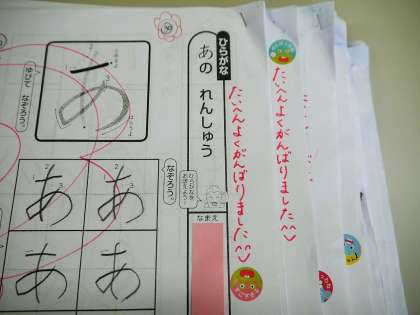 ひらがな
あの れんしゅう
たいへんよくがんばりました^^
たいへんよくがんばりました^^
ゆびで なぞろう。
あ
なぞろう。
あ
あ
あ
あ
ひらがなを
おぼえよう!
なまえ